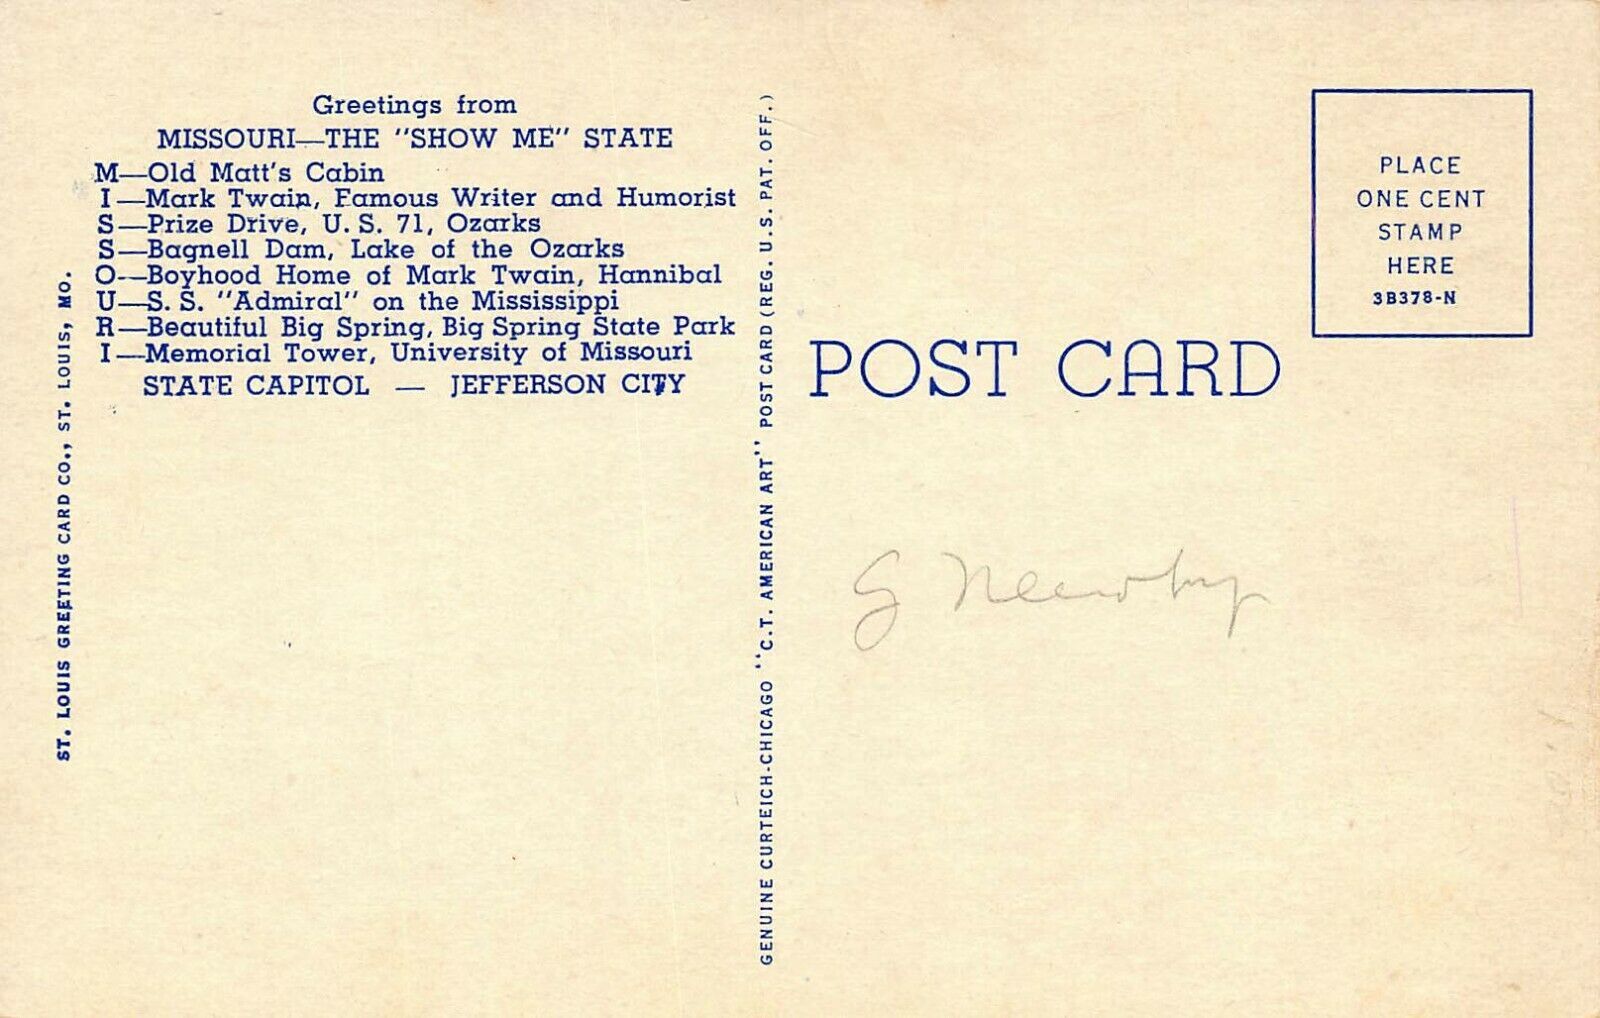 Greetings from
MISSOURI—THE "SHOW ME" STATE
M—Old Matt's Cabin
I—Mark Twain, Famous Writer and Humorist
S—Prize Drive, U. S. 71, Ozarks
S—Bagnell Dam, Lake of the Ozarks
O—Boyhood Home of Mark Twain, Hannibal
U—S. S. "Admiral" on the Mississippi
R—Beautiful Big Spring, Big Spring State Park
I—Memorial Tower, University of Missouri
STATE CAPITOL — JEFFERSON CITY
ST. LOUIS GREETING CARD CO., ST. LOUIS, MO.
GENUINE CURTEICH-CHICAGO "C.T. AMERICAN ART" POST CARD (REG. U.S. PAT. OFF.)
POST CARD
PLACE
ONE CENT
STAMP
HERE
3B378-N
G Newby